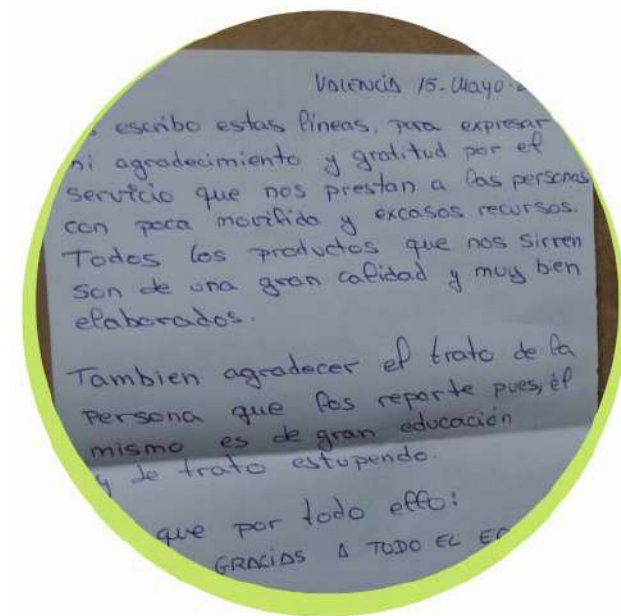 VALENCIA 15-Mayo-
escribo estas líneas, para expresar
agradecimiento y gratitud por el
servicio que nos prestan a las personas
con poca movilida y excasos recursos.
Todos los productos que nos sirven
son de una gran calidad y muy bien
elaborados.
Tambien agradecer el trato de la
persona que los reparte pues, él
mismo es de gran educación
y de trato estupendo.
que por todo ello:
GRACIAS A TODO EL